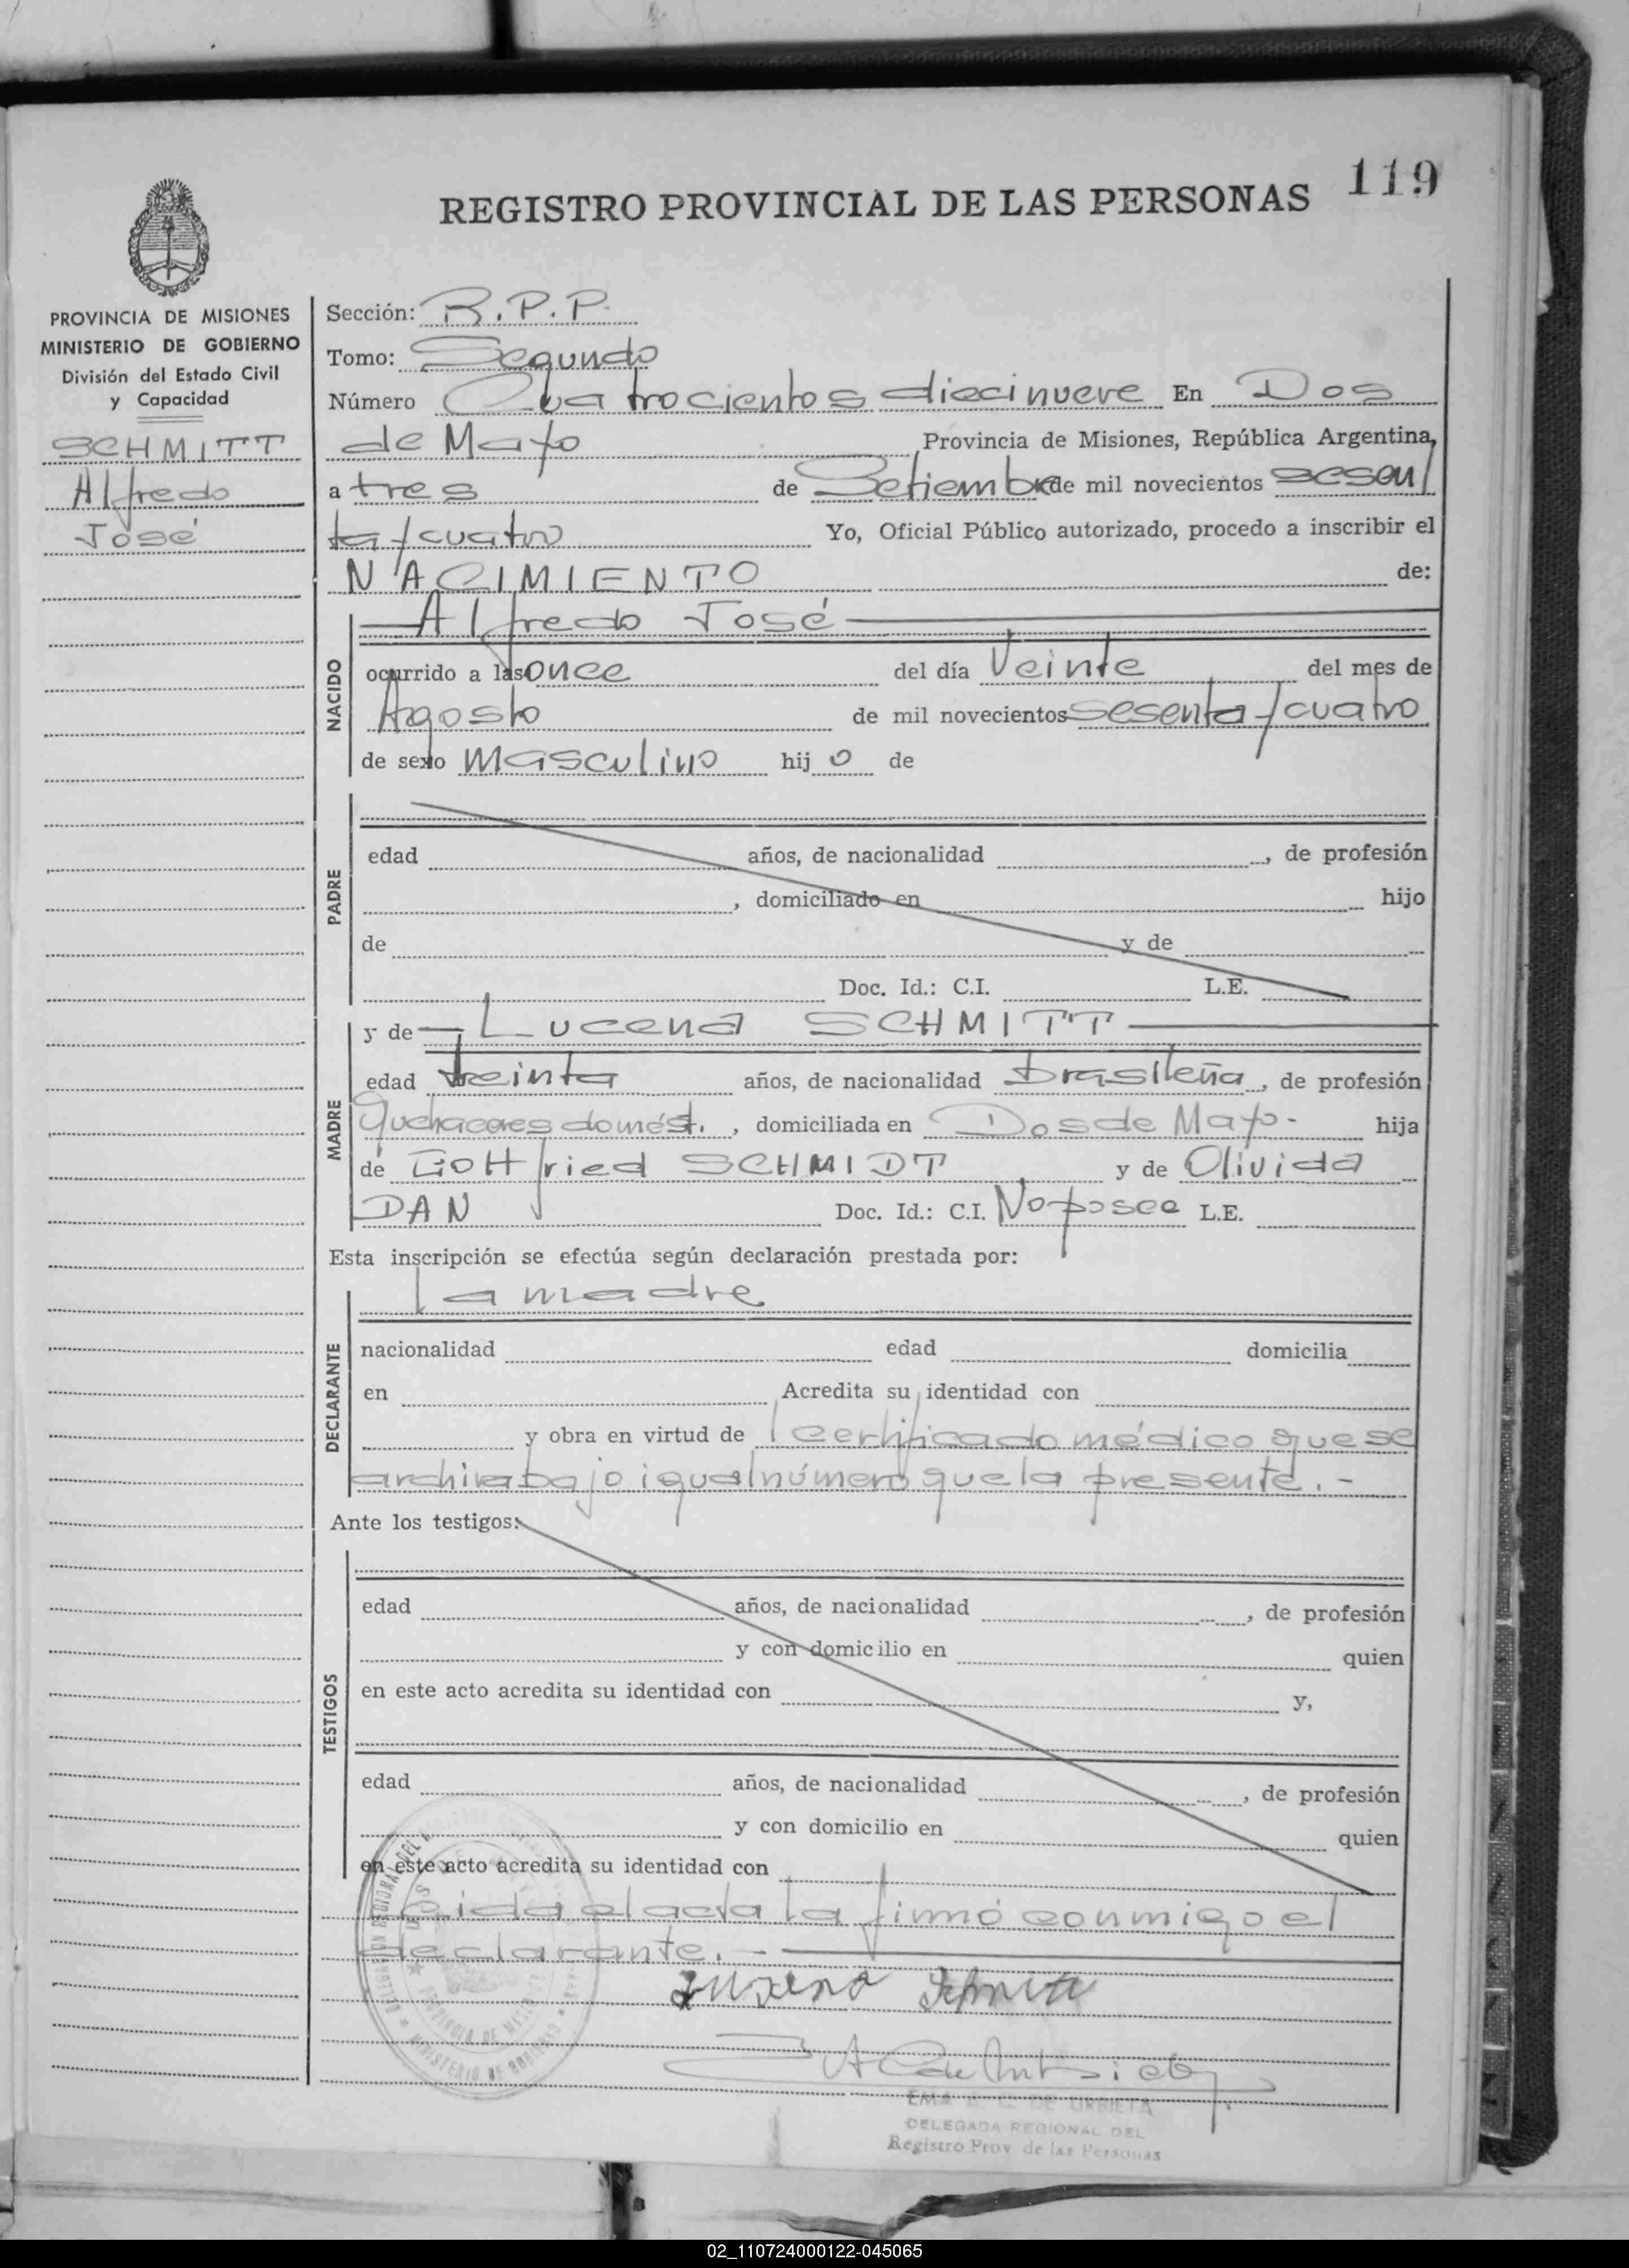 119
REGISTRO PROVINCIAL DE LAS PERSONAS
PROVINCIA DE MISIONES
MINISTERIO DE GOBIERNO
División del Estado Civil
y Capacidad
SCHMITT
Alfredo
José
Sección: R.P.P.
Tomo: Segundo
Número Cuatrocientos diecinueve En Dos
de Mayo , Provincia de Misiones, República Argentina,
a tres de Setiembre de mil novecientos sesen
ta y cuatro Yo, Oficial Público autorizado, procedo a inscribir el
NACIMIENTO de:
NACIDO
Alfredo José
ocurrido a las once del día Veinte del mes de
Agosto de mil novecientos sesenta y cuatro
de sexo masculino hij o de
PADRE
edad años, de nacionalidad , de profesión
, domiciliado en hijo
de y de
Doc. Id.: C.I. L.E.
MADRE
y de Lucena SCHMITT
edad treinta años, de nacionalidad brasileña, de profesión
Quehaceres domést. , domiciliada en Dos de Mayo.- hija
de Gottfried SCHMIDT y de Olivida
DAN Doc. Id.: C.I. No posee L.E.
Esta inscripción se efectúa según declaración prestada por:
DECLARANTE
la madre
nacionalidad edad domicilia
en Acredita su identidad con
y obra en virtud de certificado médico que se
archiva bajo igual número que la presente.-
Ante los testigos:
TESTIGOS
edad años, de nacionalidad , de profesión
y con domicilio en quien
en este acto acredita su identidad con y,
edad años, de nacionalidad , de profesión
y con domicilio en quien
en este acto acredita su identidad con
Leída el acta la firmó conmigo el
declarante.-
Luzena Schmitt
EMA C. DE URBIETA
DELEGADA REGIONAL DEL
Registro Prov. de las Personas
PROVINCIA DE MISIONES
MINISTERIO DE GOBIERNO
02_110724000122-045065